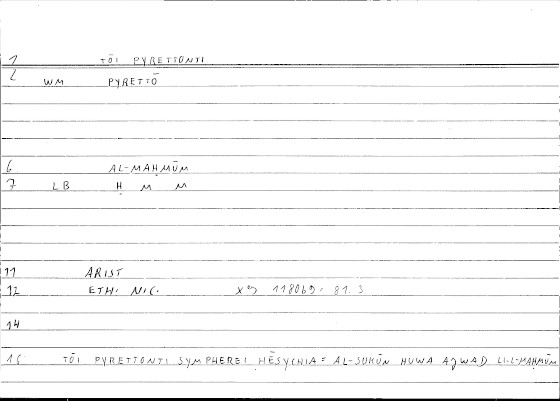 1 TŌI PYRETTONTI
2 WM PYRETTŌ
6 AL-MAḤMŪM
7 LB Ḥ M M
11 ARIST
12 ETH. NIC. 1180b9. 81.3
14
15 TŌI PYRETTONTI SYMPHEREI HĒSYCHIA = AL-SUKŪN HUWA AJWAD LI-L-MAḤMŪM